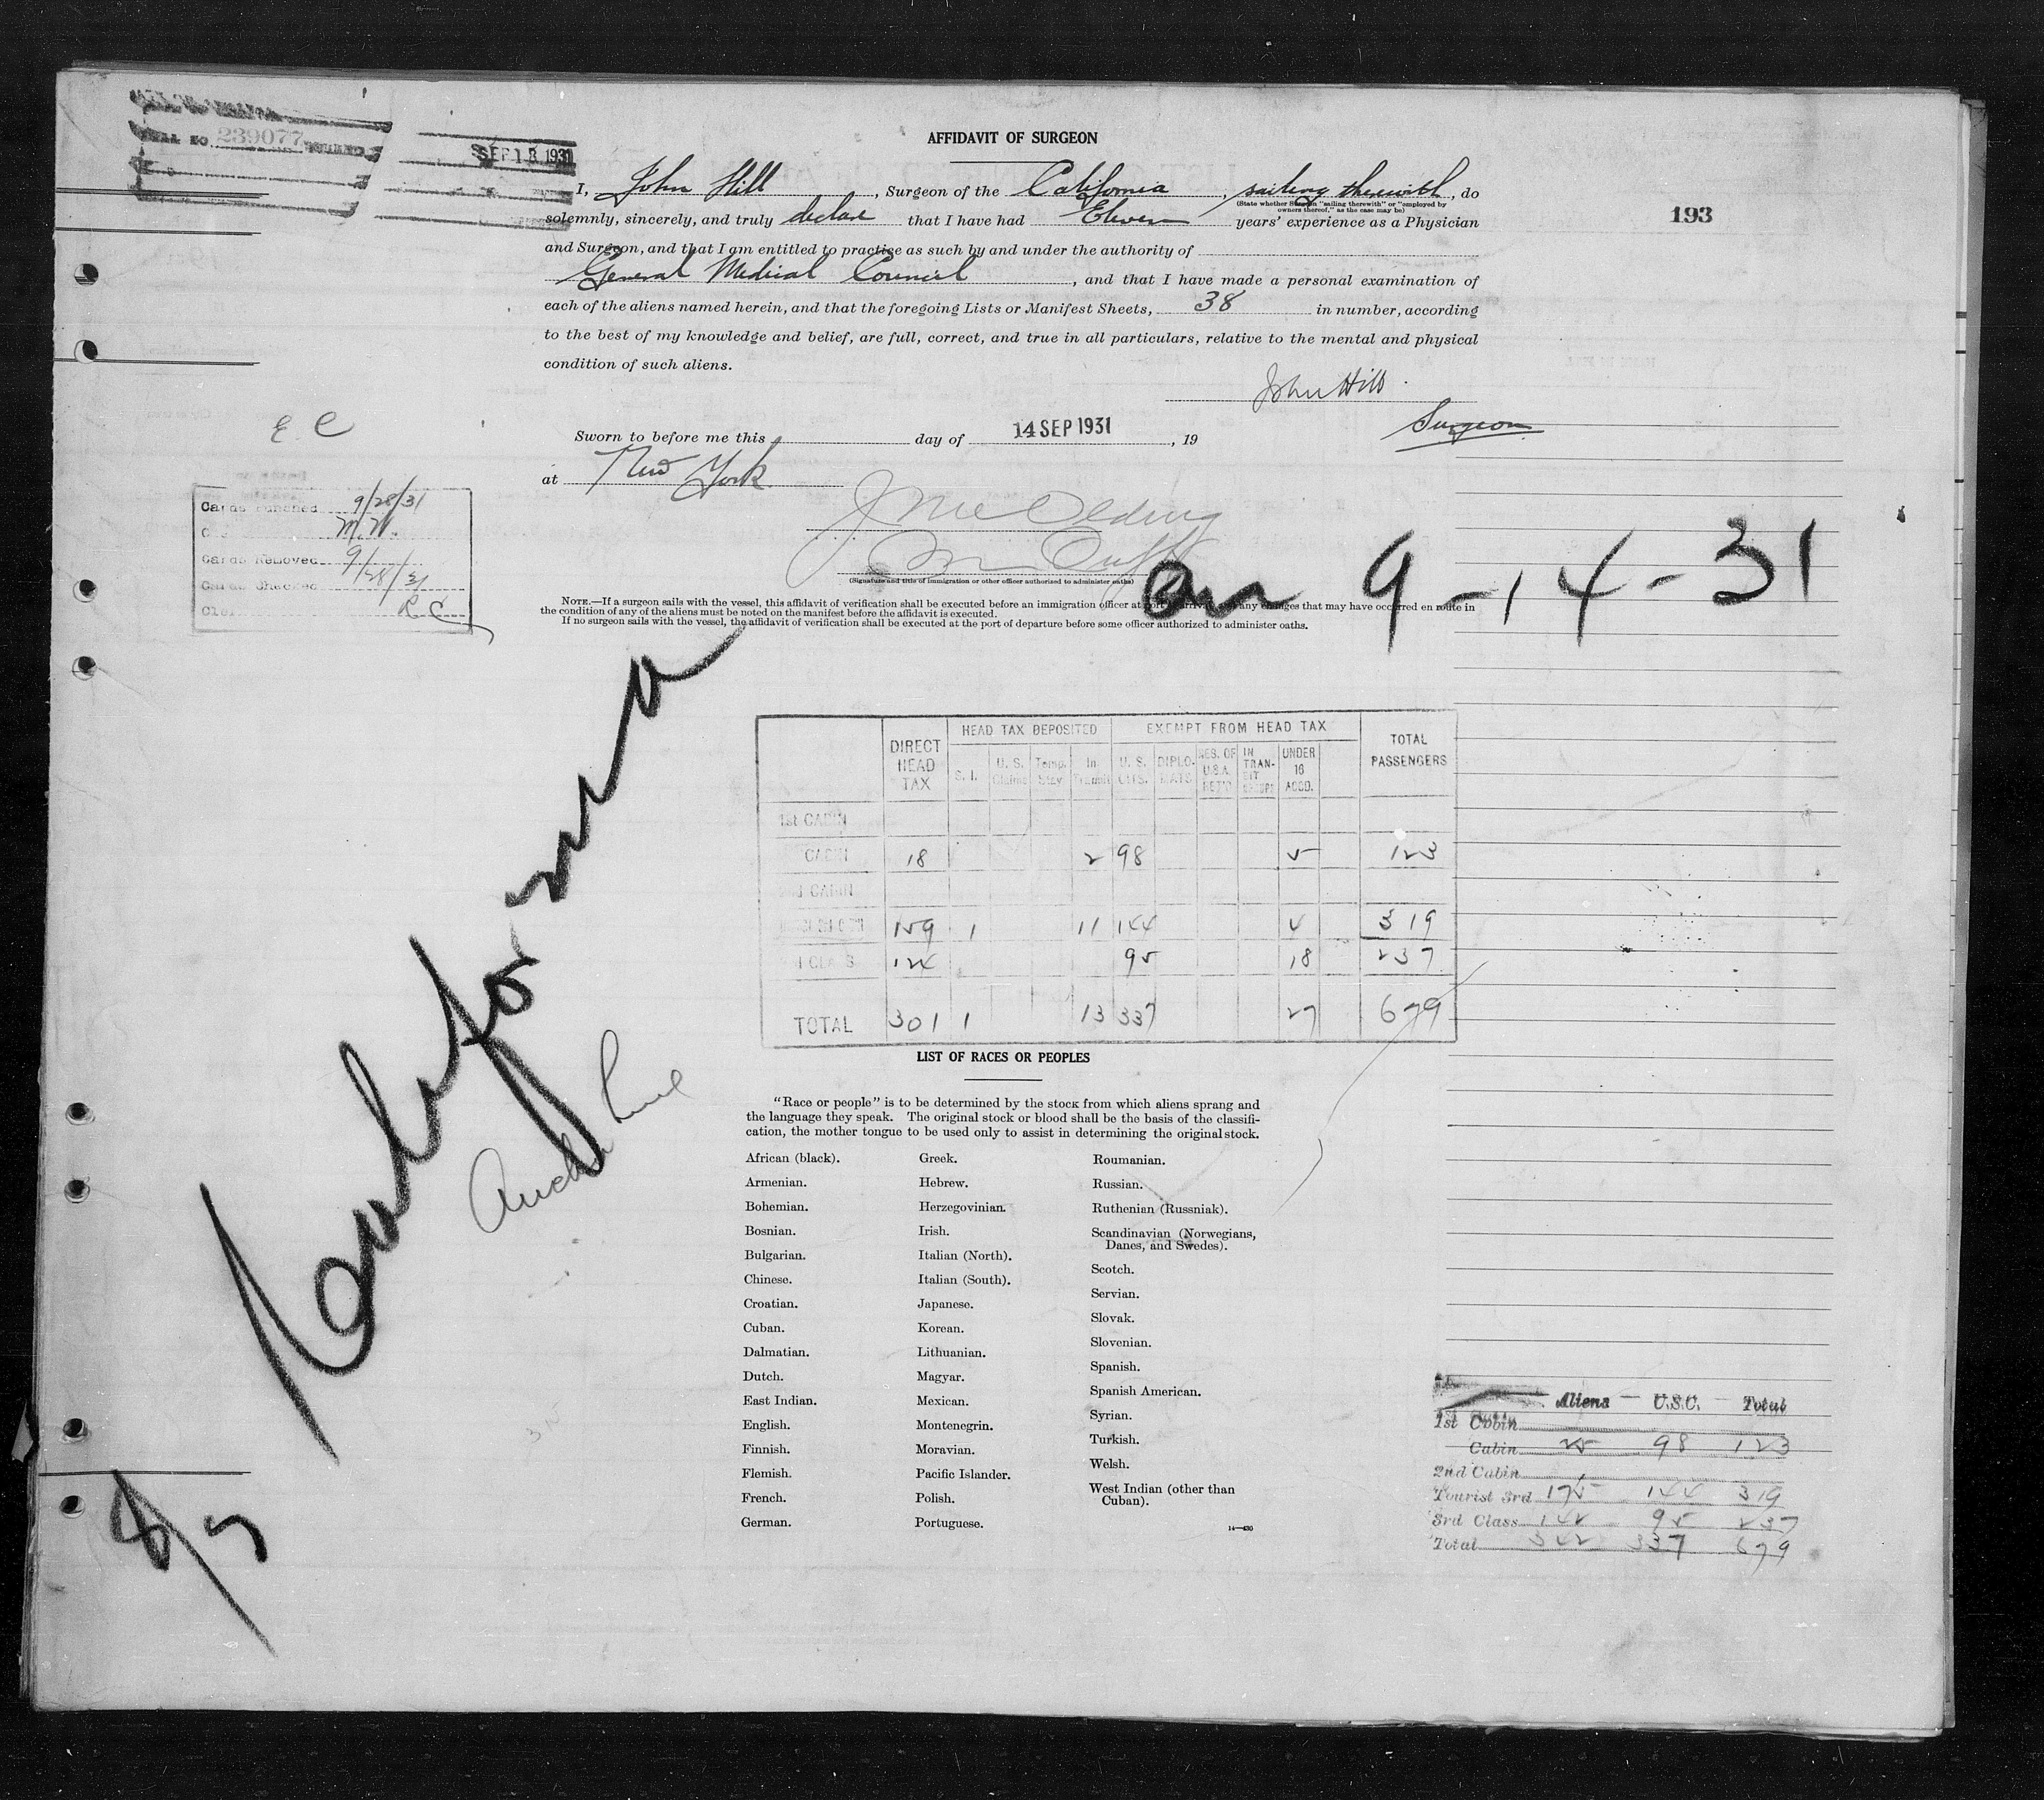 BILL NO 239077
SEP 18 1931
AFFIDAVIT OF SURGEON
I, John Hill, Surgeon of the California, sailing therewith, do
(State whether Surgeon "sailing therewith" or "employed by
owners thereof," as the case may be)
193
solemnly, sincerely, and truly declare that I have had Eleven years' experience as a Physician
and Surgeon, and that I am entitled to practise as such by and under the authority of
General Medical Council, and that I have made a personal examination of
each of the aliens named herein, and that the foregoing Lists or Manifest Sheets, 38 in number, according
to the best of my knowledge and belief, are full, correct, and true in all particulars, relative to the mental and physical
condition of such aliens.
John Hill.
Surgeon
E C
Sworn to before me this day of 14 SEP 1931, 19
at New York
(Signature and title of immigration or other officer authorized to administer oaths)
Cards Punched 9/28/31
M.W.
Cards Removed 9/28/31
Cards Checked
R C
9-14-31
NOTE.—If a surgeon sails with the vessel, this affidavit of verification shall be executed before an immigration officer at port of arrival any changes that may have occurred en route in
the condition of any of the aliens must be noted on the manifest before the affidavit is executed.
If no surgeon sails with the vessel, the affidavit of verification shall be executed at the port of departure before some officer authorized to administer oaths.
California
Line
8/7
DIRECT HEAD TAX HEAD TAX DEPOSITED EXEMPT FROM HEAD TAX TOTAL PASSENGERS
S. I. U. S. Claims Temp. Stay In Transit U. S. CITS. DIPLOMATS RES. OF U.S.A. RET'G IN TRANSIT GROUPS UNDER 16 ACCD.
1st CABIN
CABIN 18 2 98 5 123
2nd CABIN
159 1 11 144 4 319
CLASS 124 95 18 237
TOTAL 301 1 13 337 27 679
LIST OF RACES OR PEOPLES
"Race or people" is to be determined by the stock from which aliens sprang and
the language they speak. The original stock or blood shall be the basis of the classifi-
cation, the mother tongue to be used only to assist in determining the original stock.
African (black).
Armenian.
Bohemian.
Bosnian.
Bulgarian.
Chinese.
Croatian.
Cuban.
Dalmatian.
Dutch.
East Indian.
English.
Finnish.
Flemish.
French.
German.
Greek.
Hebrew.
Herzegovinian.
Irish.
Italian (North).
Italian (South).
Japanese.
Korean.
Lithuanian.
Magyar.
Mexican.
Montenegrin.
Moravian.
Pacific Islander.
Polish.
Portuguese.
Roumanian.
Russian.
Ruthenian (Russniak).
Scandinavian (Norwegians,
Danes, and Swedes).
Scotch.
Servian.
Slovak.
Slovenian.
Spanish.
Spanish American.
Syrian.
Turkish.
Welsh.
West Indian (other than
Cuban).
14—430
Aliens — U.S.C. — Total
1st Cabin
Cabin 25 98 123
2nd Cabin
Tourist 3rd 175 144 319
3rd Class 142 95 237
Total 342 337 679